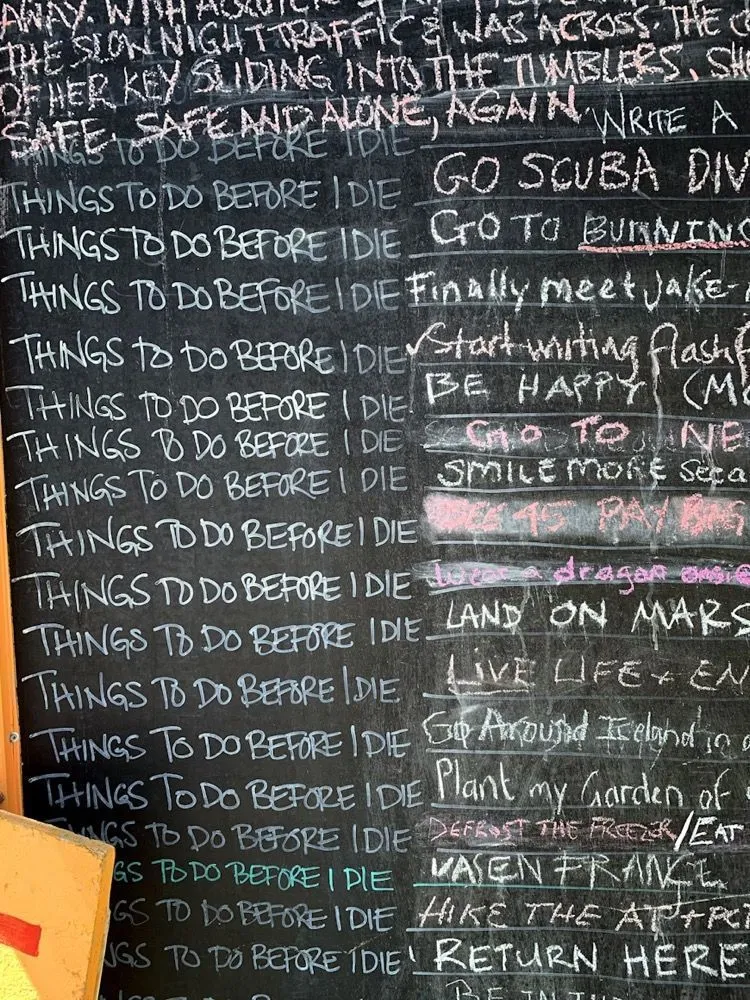 AWAY. WITH
THE SLOW NIGHT TRAFFIC & WAS ACROSS THE
OF HER KEY SLIDING INTO THE TUMBLERS. SHE
SAFE. SAFE AND ALONE, AGAIN
THINGS TO DO BEFORE I DIE WRITE A
THINGS TO DO BEFORE I DIE GO SCUBA DIV
THINGS TO DO BEFORE I DIE GO TO BURNING
THINGS TO DO BEFORE I DIE Finally meet Jake-
THINGS TO DO BEFORE I DIE ✓Start writing flash f
THINGS TO DO BEFORE I DIE BE HAPPY (M
THINGS TO DO BEFORE I DIE GO TO NE
THINGS TO DO BEFORE I DIE SMILE MORE
THINGS TO DO BEFORE I DIE 45 PAY
THINGS TO DO BEFORE I DIE wear a dragon onesie
THINGS TO DO BEFORE I DIE LAND ON MARS
THINGS TO DO BEFORE I DIE LIVE LIFE + EN
THINGS TO DO BEFORE I DIE Go Around Iceland in a
THINGS TO DO BEFORE I DIE Plant my Garden of
THINGS TO DO BEFORE I DIE DEFROST THE FREEZER/EAT
GS TO DO BEFORE I DIE FRANCE
GS TO DO BEFORE I DIE HIKE THE AT + PC
NGS TO DO BEFORE I DIE RETURN HERE
BE IN